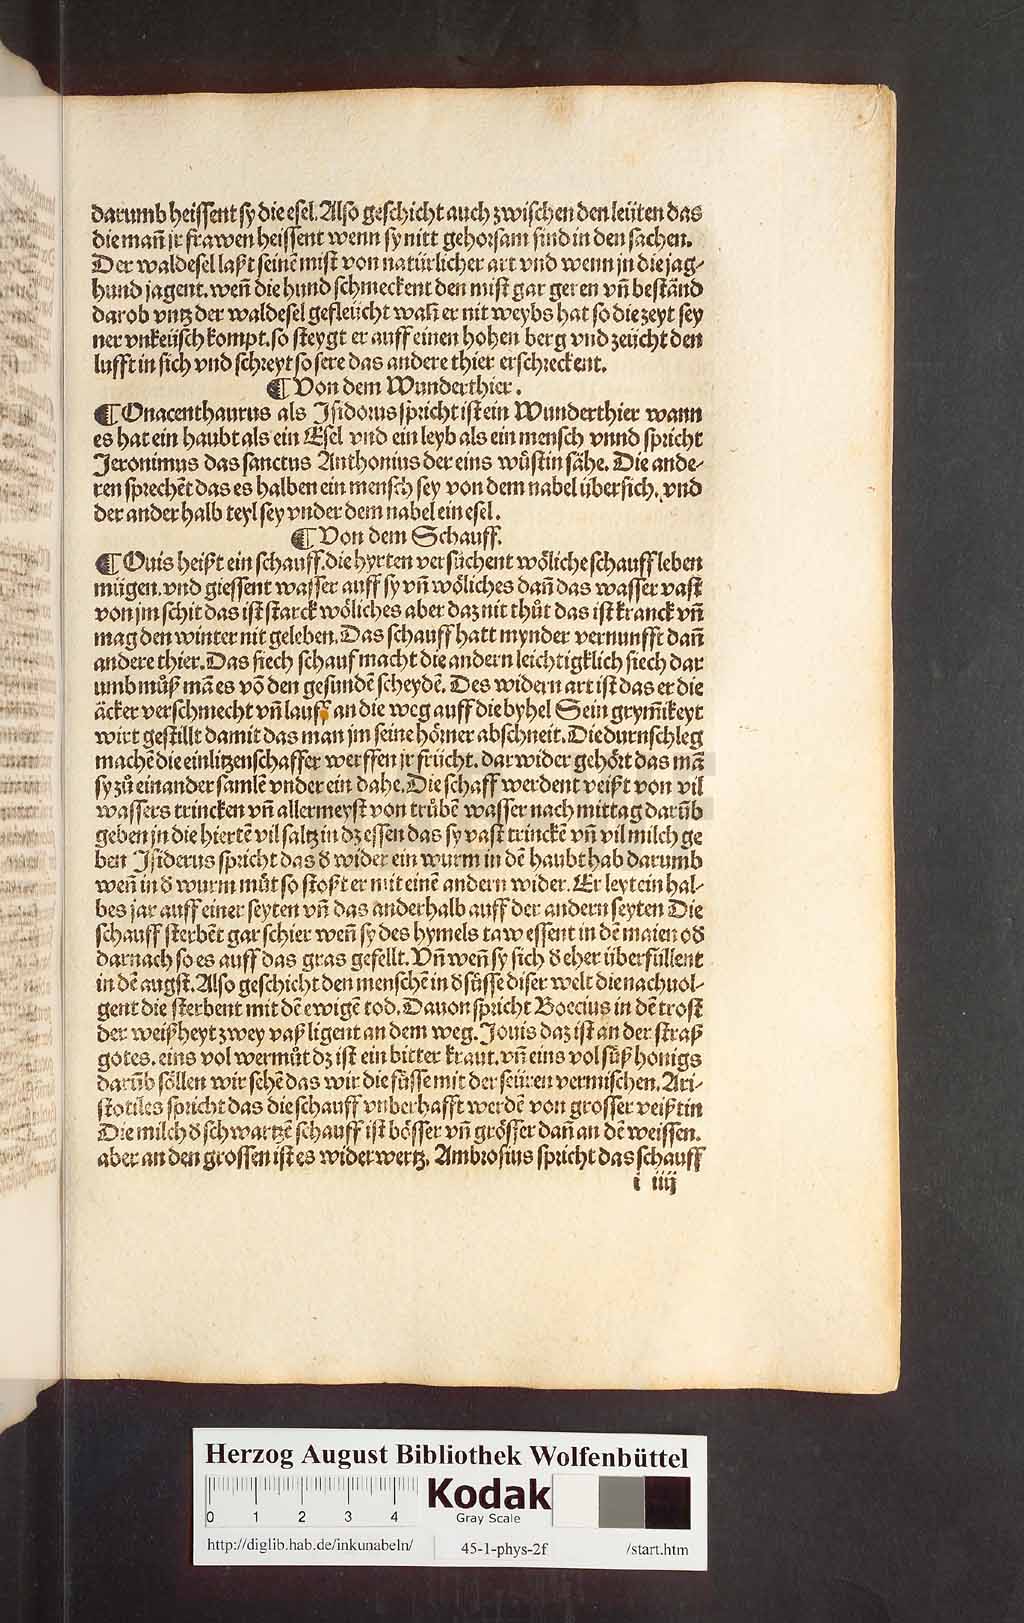 darumb heissent sy die esel. Also geschicht auch zwischen den leüten das
die mañ jr frawen heissent wenn sy nitt gehorsam sind in den sachen.
Der waldesel laßt seinē mist von natürlicher art vnd wenn jn die jag⸗
hund jagent. weñ die hund schmeckent den mist gar geren vñ bestãnd
darob vntz der waldesel gefleücht wañ er nit weybs hat so die zeyt sey
ner vnkeüsch kompt. so steygt er auff einen hohen berg vnd zeücht den
lufft in sich vnd schreyt so sere das andere thier erschreckent.
¶ Von dem Wunderthier.
¶ Onacenthaurus als Jsidorus spricht ist ein Wunderthier wann
es hat ein haubt als ein Esel vnd ein leyb als ein mensch vnnd spricht
Jeronimus das sanctus Anthonius der eins wůstin sähe. Die ande⸗
ren sprechēt das es halben ein mensch sey von dem nabel übersich. vnd
der ander halb teyl sey vnder dem nabel ein esel.
¶ Von dem Schauff.
¶ Ouis heißt ein schauff. die hyrten versůchent wöliche schauff leben
mügen. vnd giessent wasser auff sy vñ wöliches dañ das wasser vast
von jm schit das ist starck wöliches aber daz nit thůt das ist kranck vñ
mag den winter nit geleben. Das schauff hatt mynder vernunfft dañ
andere thier. Das siech schauf macht die andern leichtigklich siech dar
umb můß mã es võ den gesundē scheydē. Des widern art ist das er die
äcker verschmecht vñ lauff an die weg auff die byhel Sein grym̃ikeyt
wirt gestillt damit das man jm seine hörner abschneit. Die durnschleg
machē die einlitzenschaffer werffen jr frücht. dar wider gehört das mã
sy zů einander samlē vnder ein dahe. Die schaff werdent veißt von vil
wassers trincken vñ allermeyst von trůbē wasser nach mittag darũb
geben jn die hiertē vil saltz in dz essen das sy vast trinckē vñ vil milch ge
ben Jsiderus spricht das d̕ wider ein wurm in dē haubt hab darumb
weñ in d̕ wurm můt so stoßt er mit einē andern wider. Er leyt ein hal⸗
bes jar auff einer seyten vñ das ander halb auff der andern seyten Die
schauff sterbēt gar schier weñ sy des hymels taw essent in dē maien od̕
darnach so es auff das gras gefellt. Vñ weñ sy sich d̕ eher überfüllent
in dē augst. Also geschicht den menschē in d̕ sůsse diser welt die nachuol⸗
gent die sterbent mit dē ewigē tod. Dauon spricht Boecius in dē trost
der weißheyt zwey vaß ligent an dem weg. Jouis daz ist an der straß
gotes. eins vol wermůt dz ist ein bitter kraut. vñ eins vol süß honigs
darũb söllen wir sehē das wir die sůsse mit der seüren vermischen. Ari⸗
stotiles spricht das die schauff vnberhafft werdē von grosser veißtin
Die milch d̕ schwartzē schauff ist bösser vñ grösser dañ an dē weissen.
aber an den grossen ist es widerwertz. Ambrosius spricht das schauff
i iiij
Herzog August Bibliothek Wolfenbüttel
0 1 2 3 4
Kodak
Gray Scale
http://diglib.hab.de/inkunabeln/ 45-1-phys-2f /start.htm